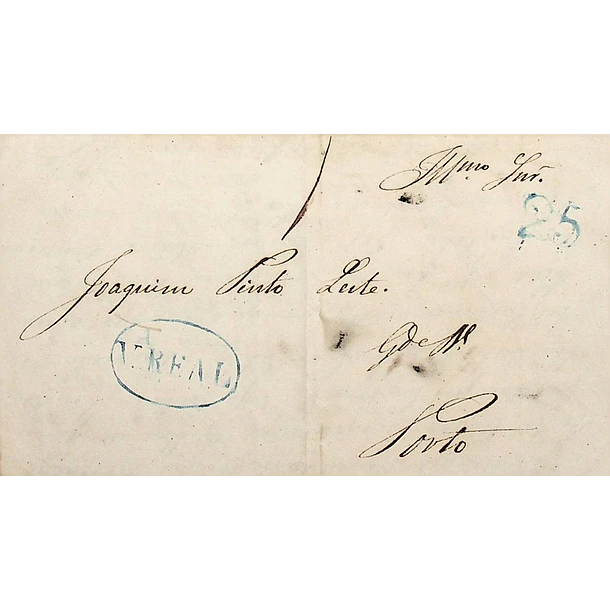 Illmo Snr.
25
Joaquim Pinto Leite.
V. REAL
Gde Ms
Porto